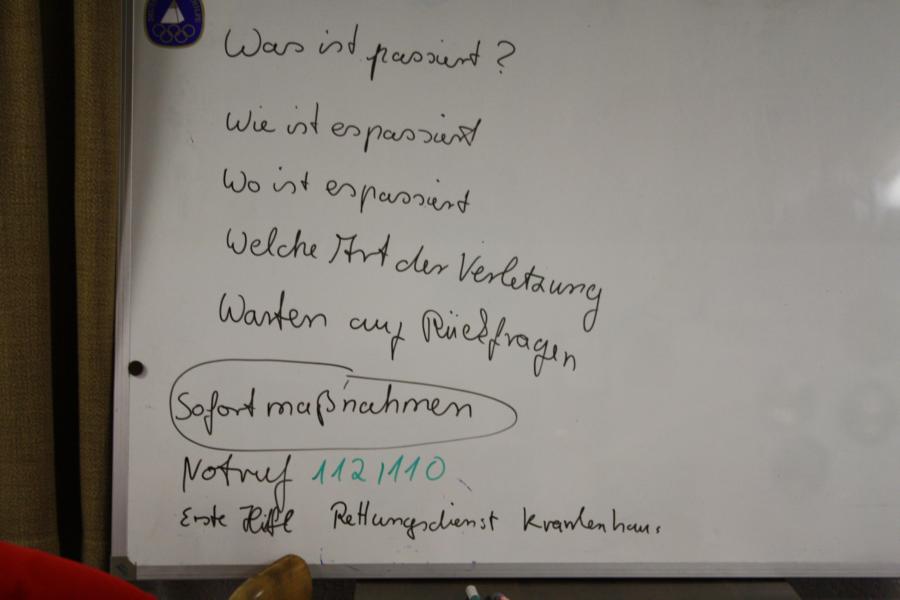 Was ist passiert?
Wie ist es passiert
Wo ist es passiert
Welche Art der Verletzung
Warten auf Rückfragen
Sofortmaßnahmen
Notruf 112,110
Erste Hilfe Rettungsdienst Krankenhaus